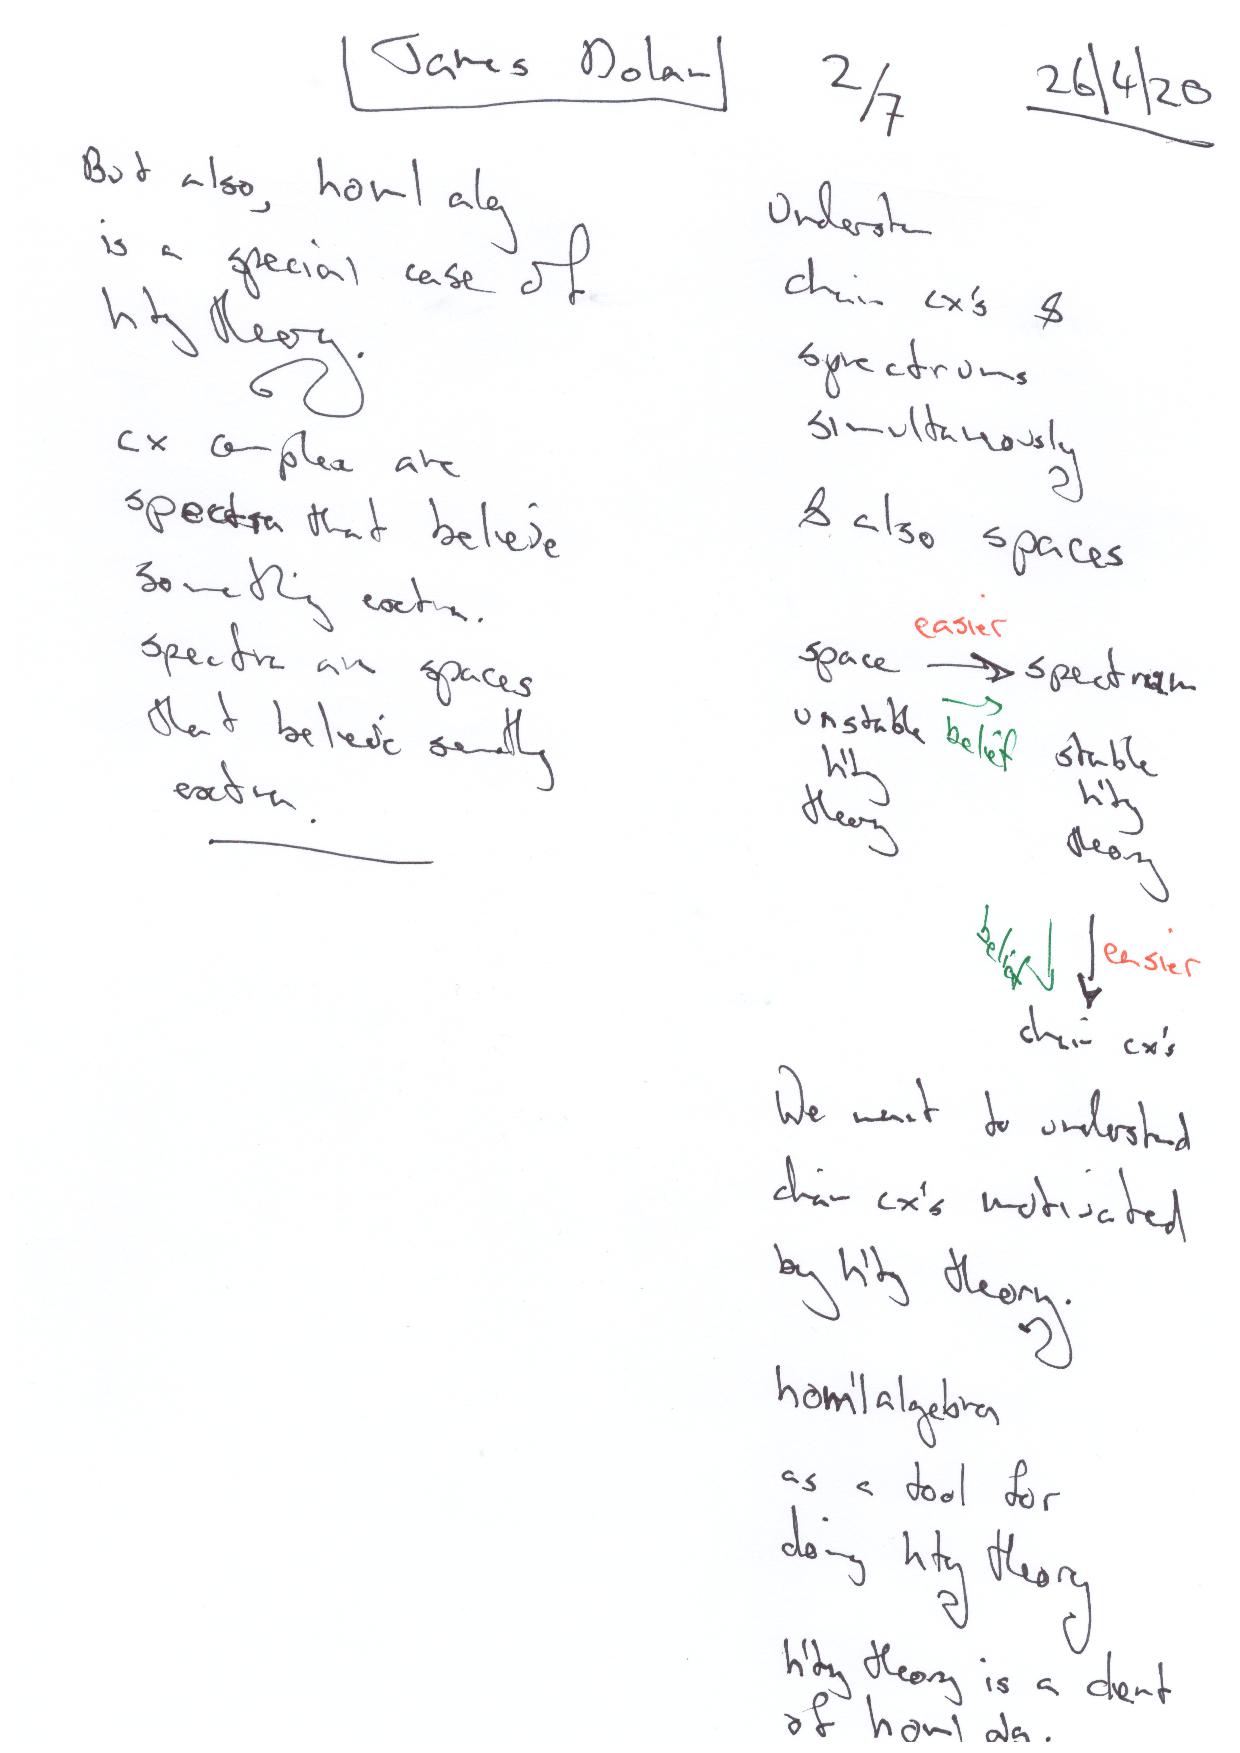 James Dolan 2/7 26/4/20
But also, hom'l alg
is a special case of
h'ty theory.
cx complex are
spectra that believe
something extra.
spectra are spaces
that believe something
extra.
Understan
chain cx's &
spectrums
simultaneously
& also spaces
easier
space → spectrum
unstable belief stable
h'ty h'ty
theory theory
belief easier
chain cx's
We want to understand
chain cx's motivated
by h'ty theory.
hom'l algebra
as a tool for
doing h'ty theory
h'ty theory is a client
of hom'l alg.